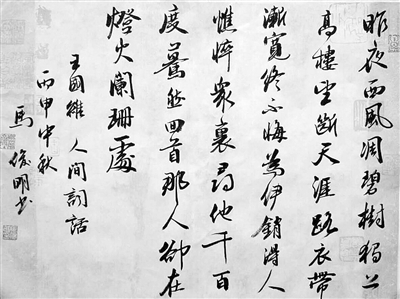 昨夜西風凋碧樹獨上
高樓望斷天涯路衣帶
漸寬終不悔為伊銷得人
憔悴衆裏尋他千百
度驀然回首那人卻在
燈火闌珊處
王國維 人間詞話
丙申中秋
馬俊明书